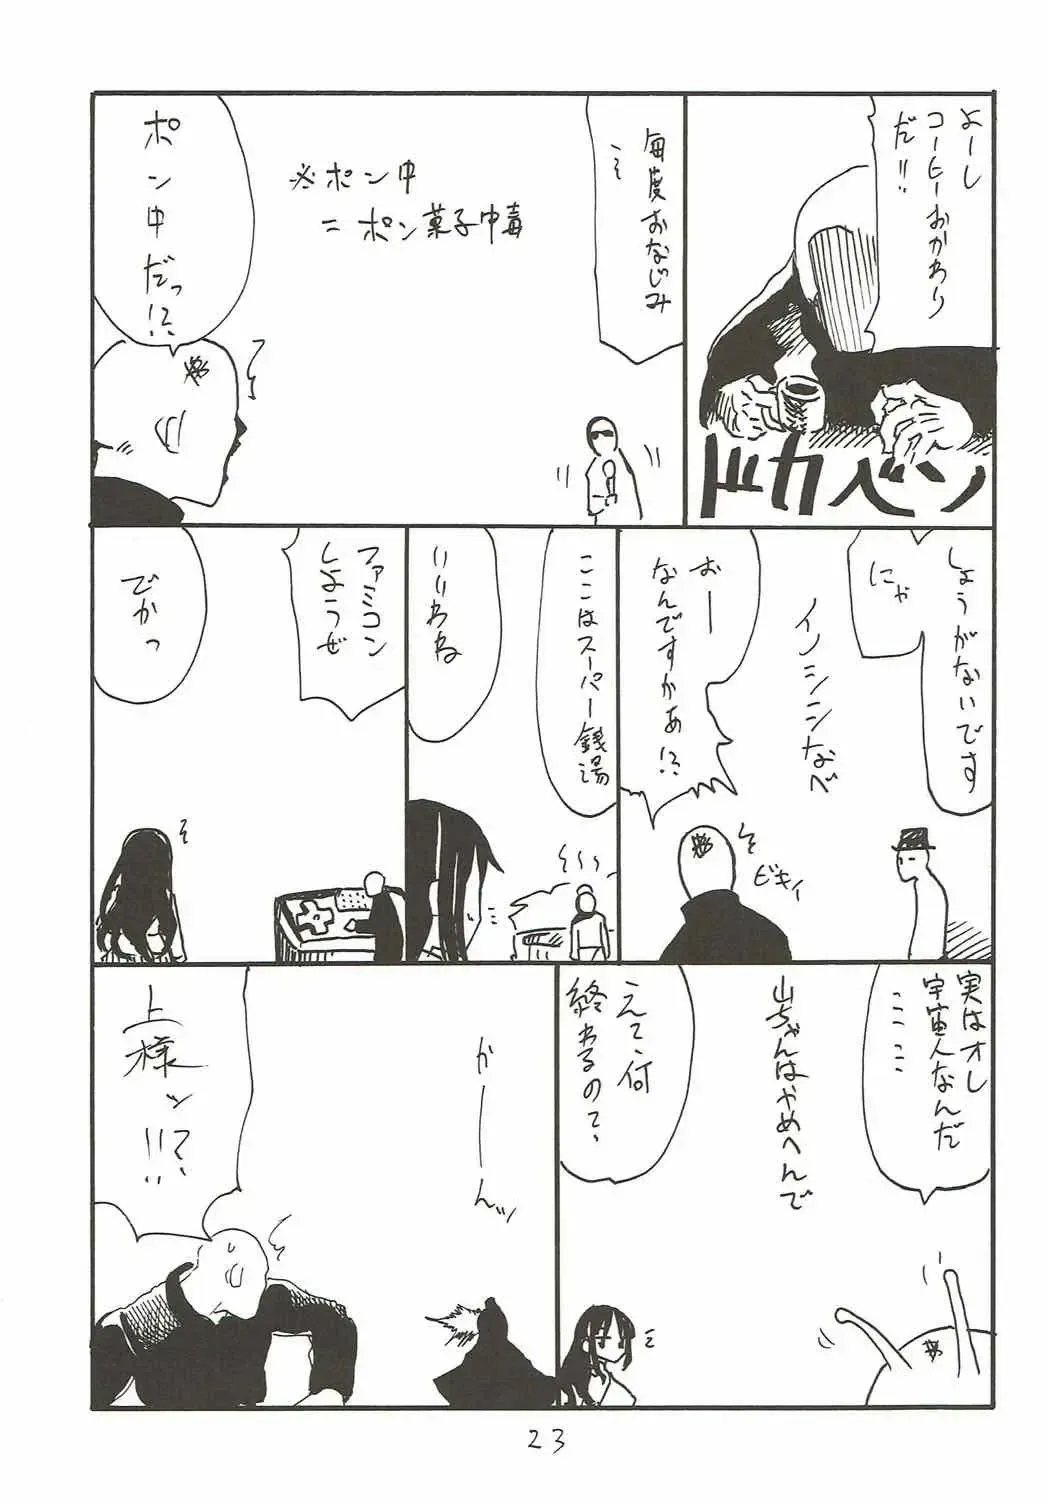 よーし
コーヒーおかわり
だ!!
ドカベン
毎度おなじみ
※ポン中
＝ポン菓子中毒
ポン中だっ!?
しょうがないです
にゃ
イノシシなべ
おー
なんですかあ!?
ビキィ
ここはスーパー銭湯
いいわね
ファミコン
しようぜ
でかっ
実はオレ
宇宙人なんだ
ニニニ
山ちゃんはやめへんで
えて、何
終わるので、
がーーんッ
上様ッ!!?
23